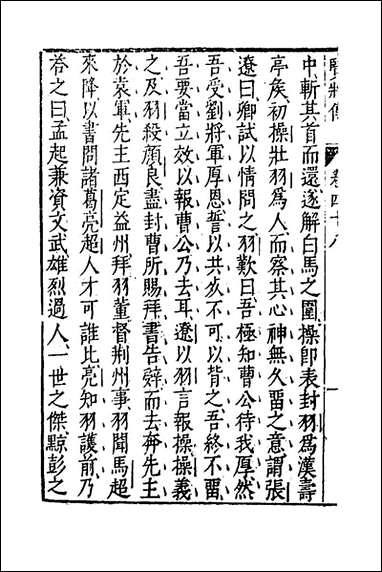 中斬其首而還遂解白馬之圍操卽表封羽爲漢壽
亭矦初操壯羽爲人而察其心神無久畱之意謂張
遼曰卿試以情問之羽歎曰吾極知曹公待我厚然
吾受劉將軍厚恩誓以共死不可以背之吾終不畱
吾要當立效以報曹公乃去耳遼以羽言報操操義
之及羽殺顏良盡封曹所賜拜書告辭而去奔先主
於袁軍先主西定益州拜羽董督荆州事羽聞馬超
來降以書問諸葛亮超人才可誰比亮知羽護前乃
答之曰孟起兼資文武雄烈過人一世之傑黥彭之